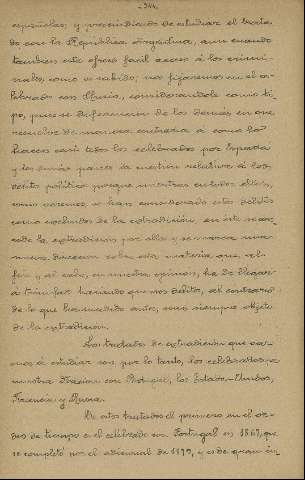 -344-
españolas; y prescindiendo de estudiar el trata-
do con la República Argentina, aun cuando
tambien este ofrece facil acceso á los crimi-
nales, como es sabido; nos fijaremos en el ce-
lebrado con Rusia, considerandole como ti-
po, pues se diferencia de los demás en que
resuelve de manera contraria á como lo
hacen casi todos los celebrados por España
y los demás paises la cuestion relativa á los
delitos politicos porque mientras en todos ellos,
como veremos se han considerado estos delitos
como excluidos de la extradición, en éste se con-
cede la extradicion por ellos y se marca una
nueva direccion sobre esta materia que al
fin y al cabo, en nuestra opinion, ha de llegar
á triunfar haciendo que esos delitos, al contrario
de lo que han sido antes, sean siempre objeto
de la extradicion.
Los tratados de extradición que va-
mos á estudiar son por lo tanto, los celebrados por
nuestra Nacion con Portugal, los Estados-Unidos,
Francia y Rusia.
De estos tratados el primero en el or-
den de tiempo es el celebrado con Portugal en 1867, que
se completó por el adicional de 1873, y es de gran in-